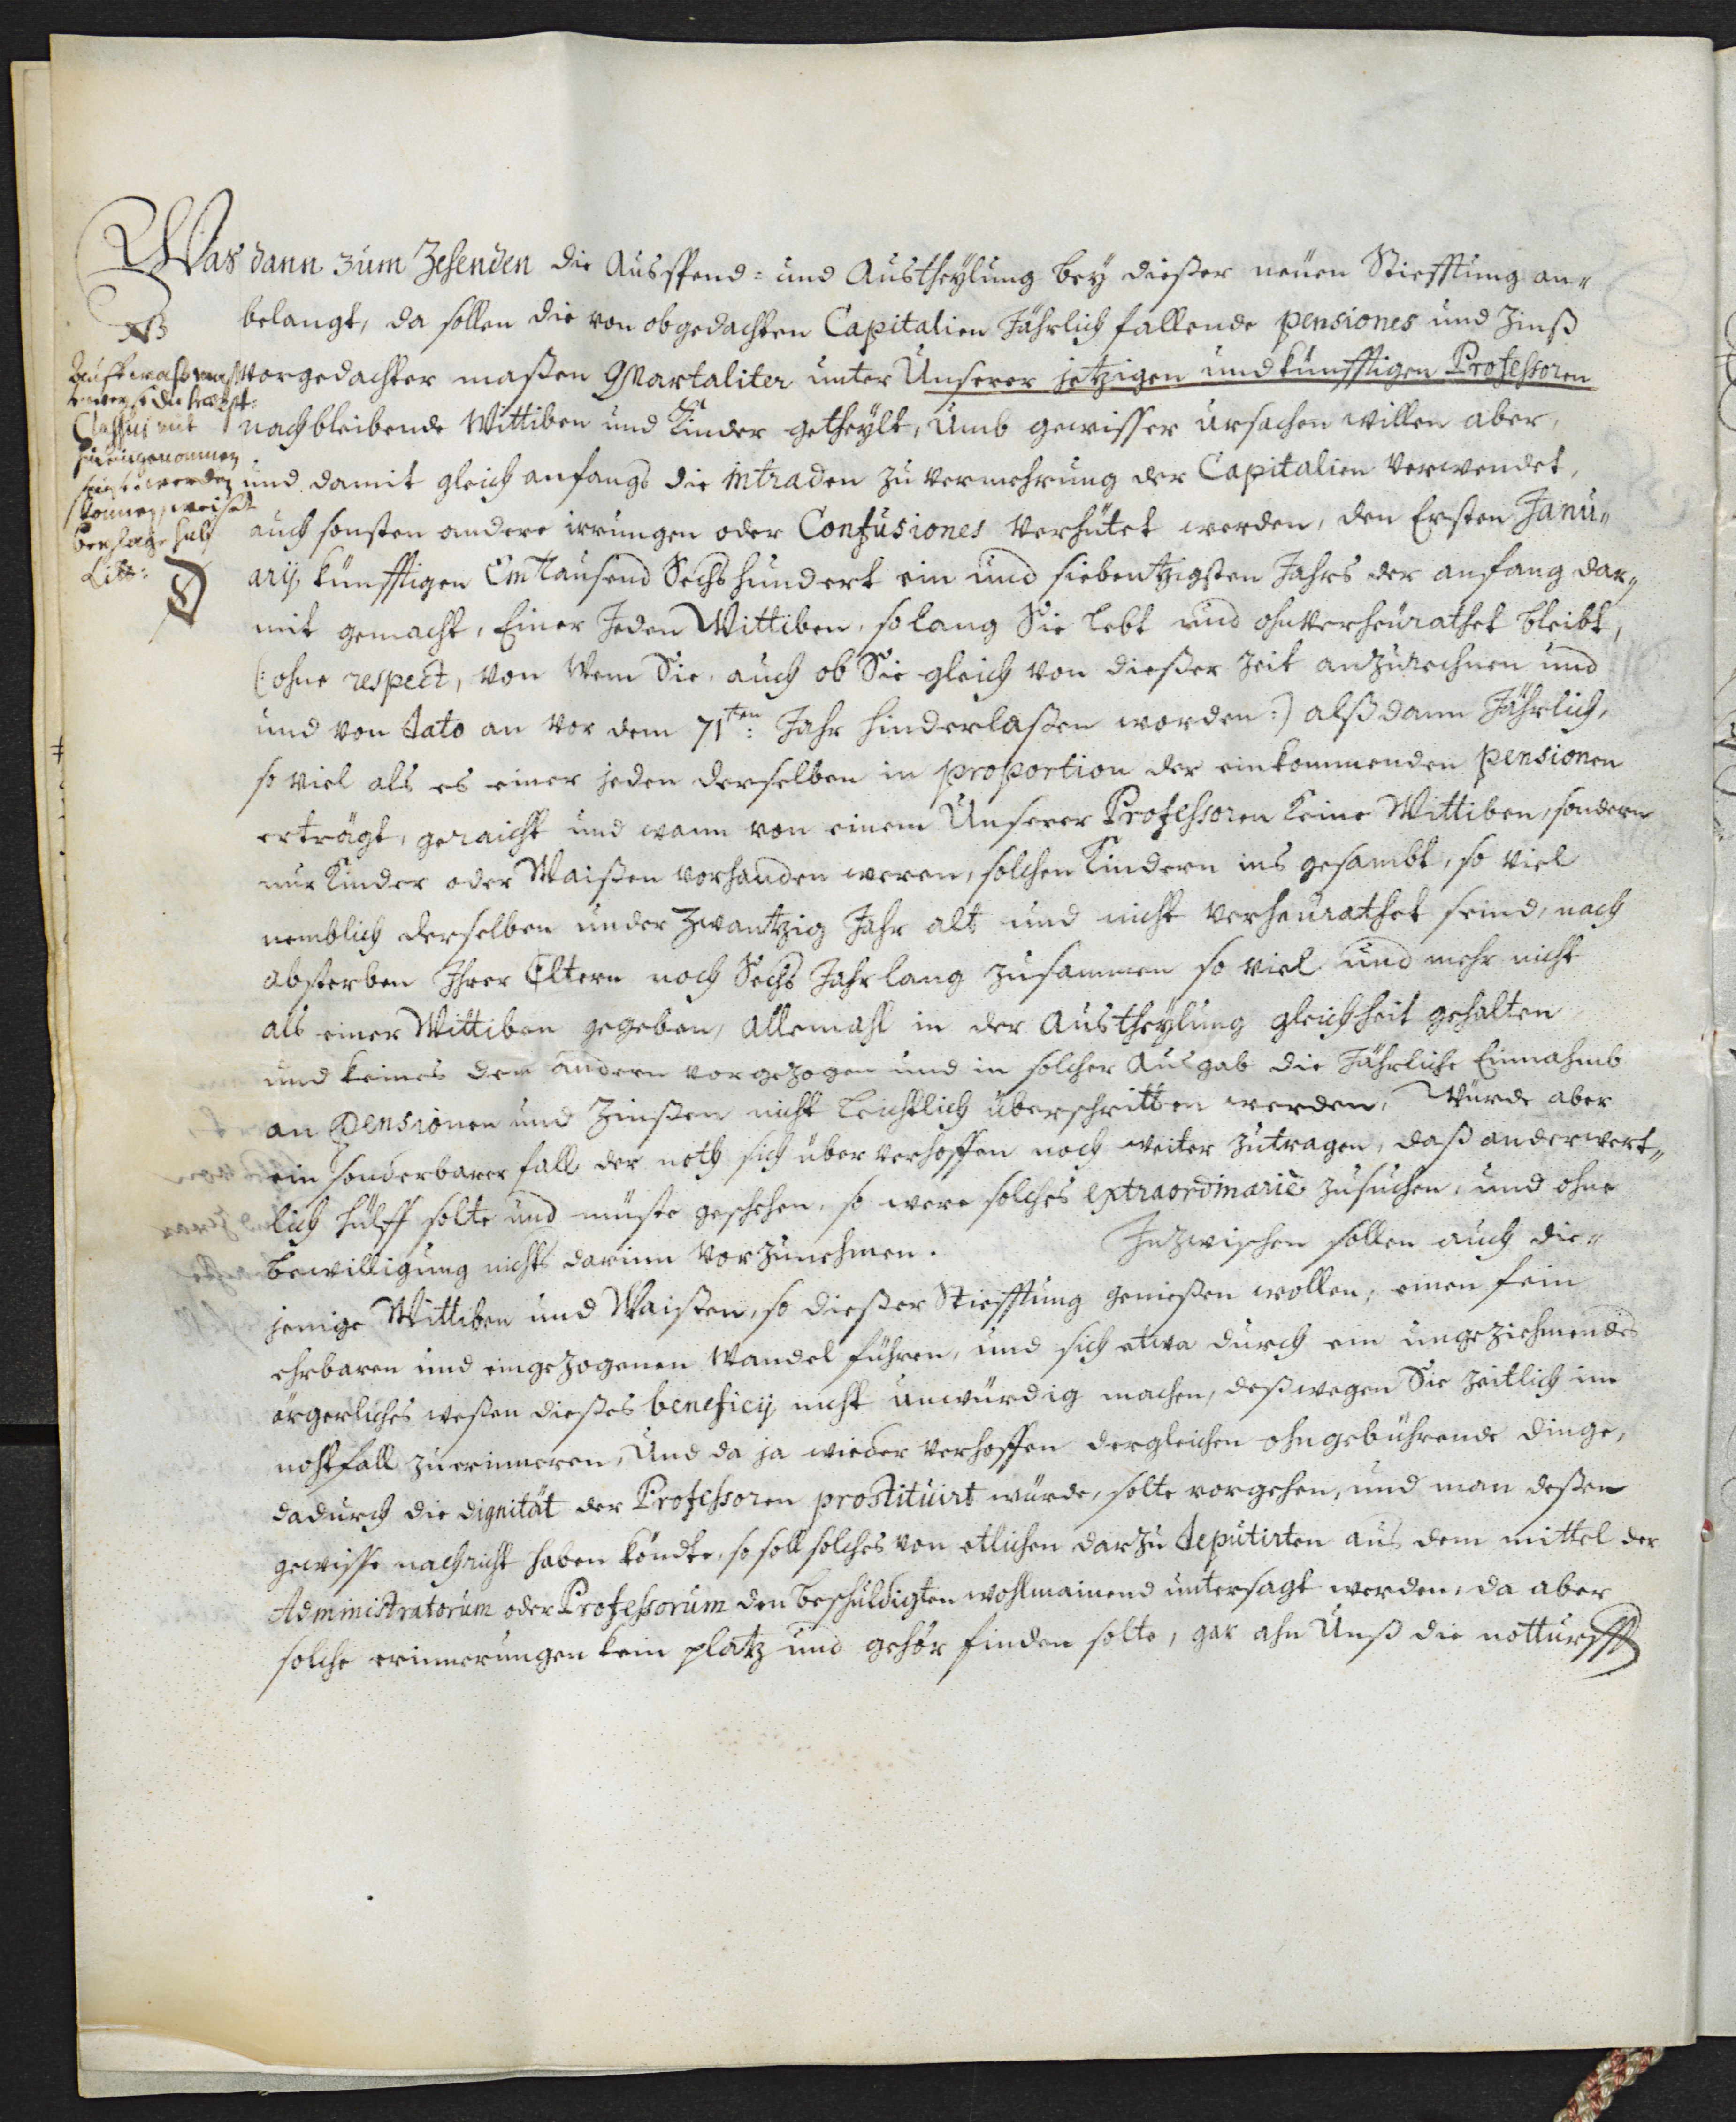 Was dann zum Zehenden die Ausspend- und Austheylung bey dießer neuen Stiefftung an„
belangt, da sollen die von obgedachten Capitalien Jährlich fallende pensiones und Zinß
vorgedachter maßen Quartaliter unter Unserer jetzigen und künfftigen Professoren
nachbleibende Wittiben und Kinder getheylt, Umb gewisser ursachen willen aber,
und damit gleich anfangs die intraden zu vermehrung der Capitalien verwendet,
auch sonsten andere irrungen oder Confusiones verhütet werden, den Ersten Janu„
arij, künfftigen Eintausend Sechshundert ein und siebentzigsten Jahrs der anfang dar„
mit gemacht, Einer Jeden Wittiben, so lang Sie lebt und ohnverheurathet bleibt,
(: ohne respect, von Wem Sie, auch ob Sie gleich von dießer Zeit anzurechnen und
und von dato an vor dem 71ten: Jahr hinderlaßen worden :) alßdann Jährlich,
so viel als es einer jeden derselben in proportion der einkommenden pensionen
erträgt, geraicht und wann von einem Unserer Professoren keine Wittiben, sondern
nur Kinder oder Waißen vorhanden weren, solchen Kindern ins gesambt, so viel
nemblich derselben under Zwantzig Jahr alt und nicht verheurathet seind, nach
absterben Ihrer Eltern noch Sechs Jahr lang zusammen so viel und mehr nicht
als einer Wittiben gegeben, allemahl in der Austheylung gleichheit gehalten
und keines dem andern vorgezogen und in solcher Ausgab die Jährliche Einnahmb
an pensionen und Zinßen nicht leichtlich überschritten werden, Würde aber
ein sonderbarer fall der noth sich über verhoffen noch weiter zutragen, daß anderwert„
lich hülff solte und müste geschehen, so were solches extraordinariè zusuchen, und ohne
bewilligung nichts darinn vorzunehmen. Inzwischen sollen auch die„
jenige Wittiben und Waißen, so dießer Stiefftung genießen wollen, einen fein
ehrbaren und eingezogenen Wandel führen, und sich etwa durch ein ungeziehmendes
ärgerliches weßen dießes beneficij nicht unwürdig machen, deßwegen Sie zeitlich im
nohtfall zu erinneren, Und da ja wieder verhoffen dergleichen ohngebührende dinge,
dadurch die dignität der Professoren prostituirt würde, solte vorgehen, und man deßen
gewisse nachricht haben köndte, so soll solches von etlichen darzu deputirten aus dem mittel der
Administratorum oder Professorum den beschuldigten wohlmainend untersagt werden, da aber
solche erinnerungen kein platz und gehör finden solte, gar ahn Unß die notturfft
NB
Classici mit
hereingenommen
werden
können, weiset
beylage sub
Litt:
D